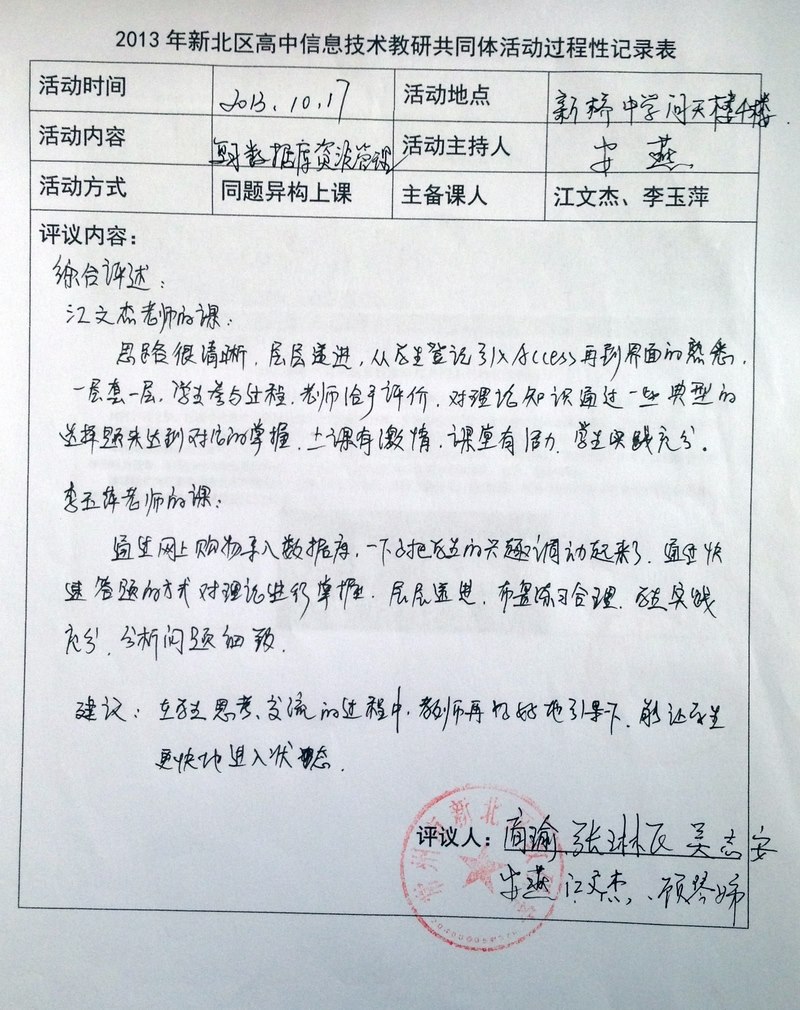 2013年新北区高中信息技术教研共同体活动过程性记录表
活动时间 2013.10.17 活动地点 新桥中学问天楼4楼
活动内容 数据库资源管理 活动主持人 安燕
活动方式 同题异构上课 主备课人 江文杰、李玉萍
评议内容：
综合评述：
江文杰老师的课：
思路很清晰，层层递进，从学生登记引入Access再到界面的熟悉，
一层套一层，学生参与过程，老师给予评价，对理论知识通过一些典型的
选择题来达到对它的掌握，上课有激情，课堂有活力，学生实践充分。
李玉萍老师的课：
通过网上购物导入数据库，一下子把学生的兴趣调动起来了，通过快
速答题的方式对理论进行掌握，层层递进，布置练习合理，学生实践
充分，分析问题细致.
建议：在学生思考、交流的过程中，教师再好好地引导下，能让学生
更快地进入状态.
评议人：商瑜 张琳 吴志安
安燕 江文杰、顾琴
常州 新北